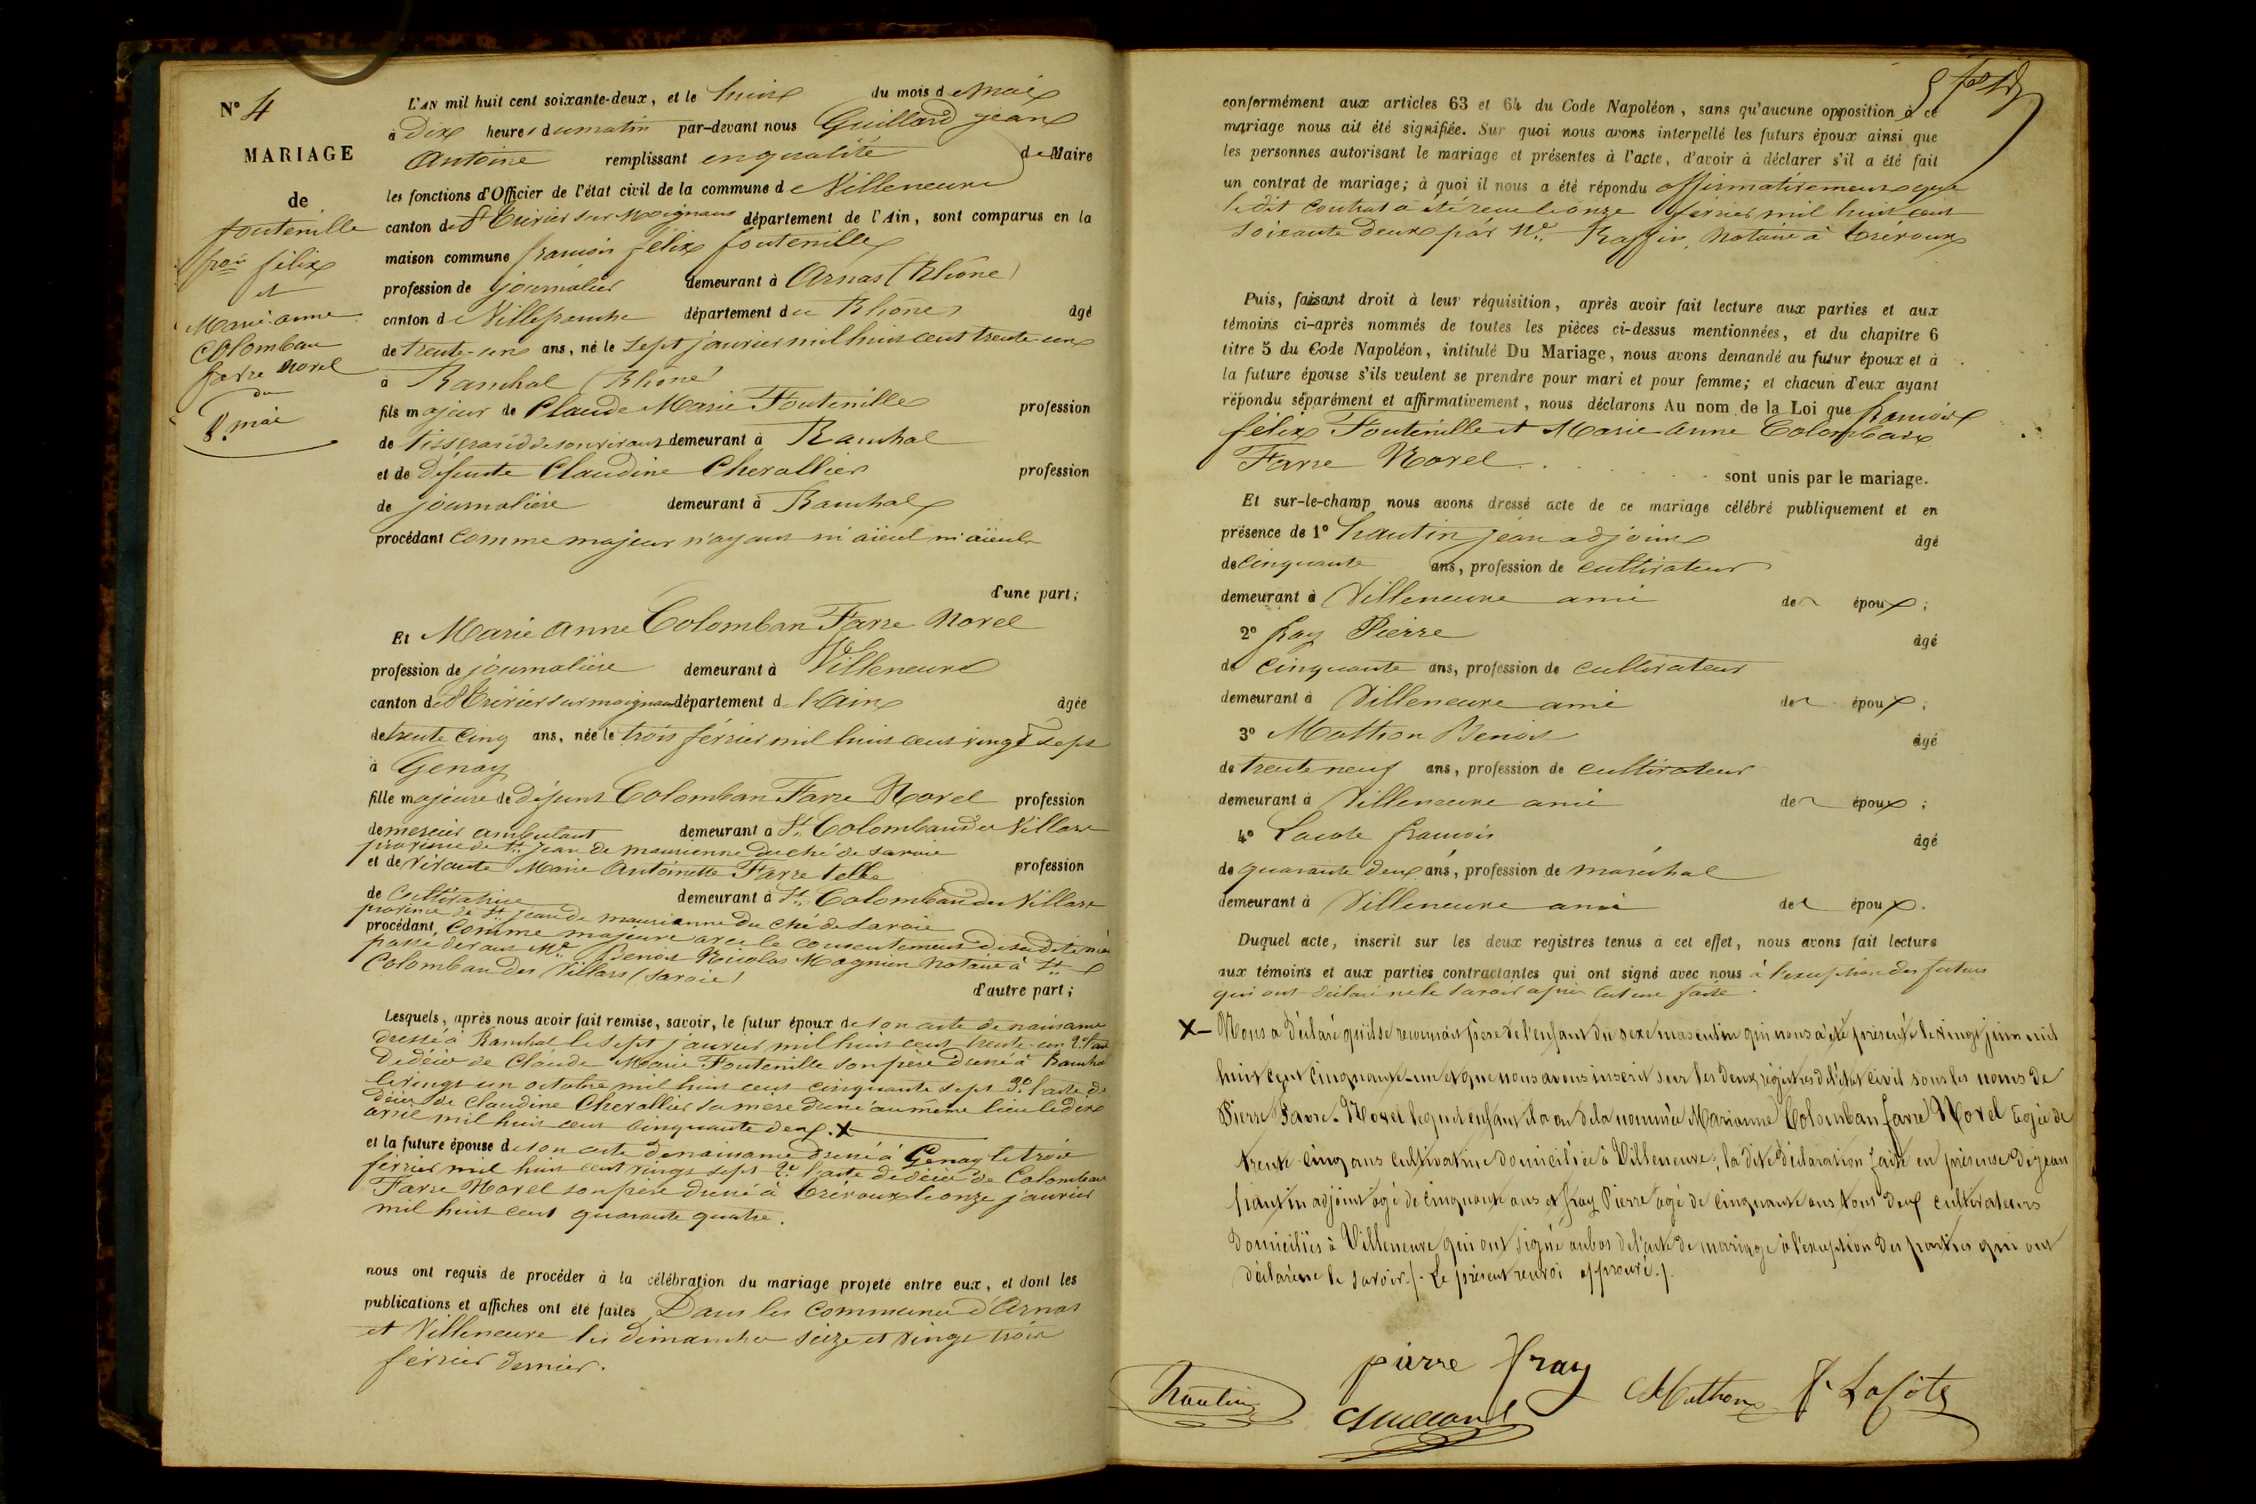 N° 4
MARIAGE
de
fontenille
fçois félix
et
Marie-anne
Colomban
farre Novel
du
8 mai
L'AN mil huit cent soixante-deux, et le huit du mois de Mai
à Dix heures du matin par-devant nous Guillard jean
Antoine remplissant en qualité de Maire
les fonctions d'Officier de l'état civil de la commune de Villeneuve
canton de St Trivier sur Moignans département de l'Ain, sont comparus en la
maison commune francois félix fontenille
profession de journalier demeurant à Arnas (Rhône)
canton de Villefranche département du Rhône âgé
de trente-un ans, né le sept janvier mil huit cent trente un
à Ranchal (Rhône)
fils majeur de Claude Marie Fontenille profession
de tisserand de son vivant demeurant à Ranchal
et de défunte Claudine Chevallier profession
de journalière demeurant à Ranchal
procédant comme majeur n'ayant ni aïeul ni aïeule
d'une part;
Et Marie anne Colomban Farre Novel
profession de journalière demeurant à Villeneuve
canton de St Trivier sur moignans département de l'Ain âgée
de trente cinq ans, née le trois février mil huit cent vingt sept
à Genay
fille majeure de défunt Colomban Farre Novel profession
de mercier ambulant demeurant à St. Colomban des Villars
province de St. Jean de maurienne duché de savoie
et de vivante Marie Antoinette Farre telle profession
de Cultivatrice demeurant à St. Colomban des Villars
province de St. jean de maurianne du ché de savoie
procédant, comme majeure avec le consentement de sa dite mère
passé devant Me. Benoit Nicolas Magnin Notaire à St.
Colomban des Villars (savoie)
d'autre part;
Lesquels, après nous avoir fait remise, savoir, le futur époux de son acte de naissance
dressé à Ranchal le sept janvier mil huit cent trente-un 2° l'acte
de décès de Claude Marie Fontenille son père dressé à Ranchal
le vingt un octobre mil huit cent cinquante sept 3° l'acte de
décès de Claudine Chevallier sa mère dressé au même lieu le dix
avril mil huit cent cinquante deux. X
et la future épouse de son acte de naissance dressé à Genay le trois
février mil huit cent vingt sept 2° l'acte de décès de Colomban
Farre Novel son père dressé à Trévoux le onze janvier
mil huit cent quarante quatre.
nous ont requis de procéder à la célébration du mariage projeté entre eux, et dont les
publications et affiches ont été faites Dans les Communes d'Arnas
et Villeneuve les dimanches seize et vingt trois
février dernier.
conformément aux articles 63 et 64 du Code Napoléon, sans qu'aucune opposition à ce
mariage nous ait été signifiée. Sur quoi nous avons interpellé les futurs époux ainsi que
les personnes autorisant le mariage et présentes à l'acte, d'avoir à déclarer s'il a été fait
un contrat de mariage; à quoi il nous a été répondu affirmativement que
le dit contrat a été reçu le onze février mil huit cent
soixante deux par Me. Raffin, Notaire à Trévoux
Puis, faisant droit à leur réquisition, après avoir fait lecture aux parties et aux
témoins ci-après nommés de toutes les pièces ci-dessus mentionnées, et du chapitre 6
titre 5 du Code Napoléon, intitulé Du Mariage, nous avons demandé au futur époux et à
la future épouse s'ils veulent se prendre pour mari et pour femme; et chacun d'eux ayant
répondu séparément et affirmativement, nous déclarons Au nom de la Loi que francois
félix Fontenille et Marie Anne Colomban
Farre Novel
sont unis par le mariage.
Et sur-le-champ nous avons dressé acte de ce mariage célébré publiquement et en
présence de 1° hautin jean adjoint âgé
de Cinquante ans, profession de cultivateur
demeurant à Villeneuve ami des époux;
2° fray Pierre âgé
de Cinquante ans, profession de cultivateur
demeurant à Villeneuve ami des époux;
3° Mathon Benoit âgé
de trente neuf ans, profession de cultivateur
demeurant à Villeneuve ami des époux;
4° Lacote francois âgé
de quarante deux ans, profession de maréchal
demeurant à Villeneuve ami des époux.
Duquel acte, inscrit sur les deux registres tenus à cet effet, nous avons fait lecture
aux témoins et aux parties contractantes qui ont signé avec nous à l'exception des futurs
qui ont déclaré ne le savoir après lecture faite.
X— Nous a déclaré qu'il se reconnait père de l'enfant du sexe masculin qui nous a été présenté le vingt juin mil
huit cent cinquante-un et que nous avons inscrit sur les deux régistres de l'état civil sous les noms de
Pierre Favre-Novel lequel enfant il a eu de la nommée Marianne Colomban farre Novel agée de
trente cinq ans cultivatrice domiciliée à Villeneuve; la dite déclaration faite en présence de jean
hautin adjoint agé de cinquante ans et fray Pierre agé de cinquante ans tous deux cultivateurs
domiciliés à Villeneuve qui ont signé au bas de l'acte de mariage à l'exception des parties qui ont
déclaré ne le savoir./. Le présent renvoi approuvé./.
hautin
pierre fray
Guillard
Mathon
F. Lacôte